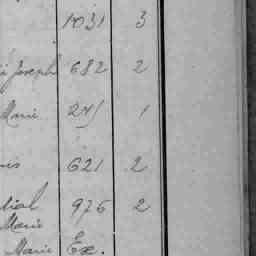 1031 3
Joseph 682 2
Marie 245 1
621 2
976 2
Marie
Marie Ex.